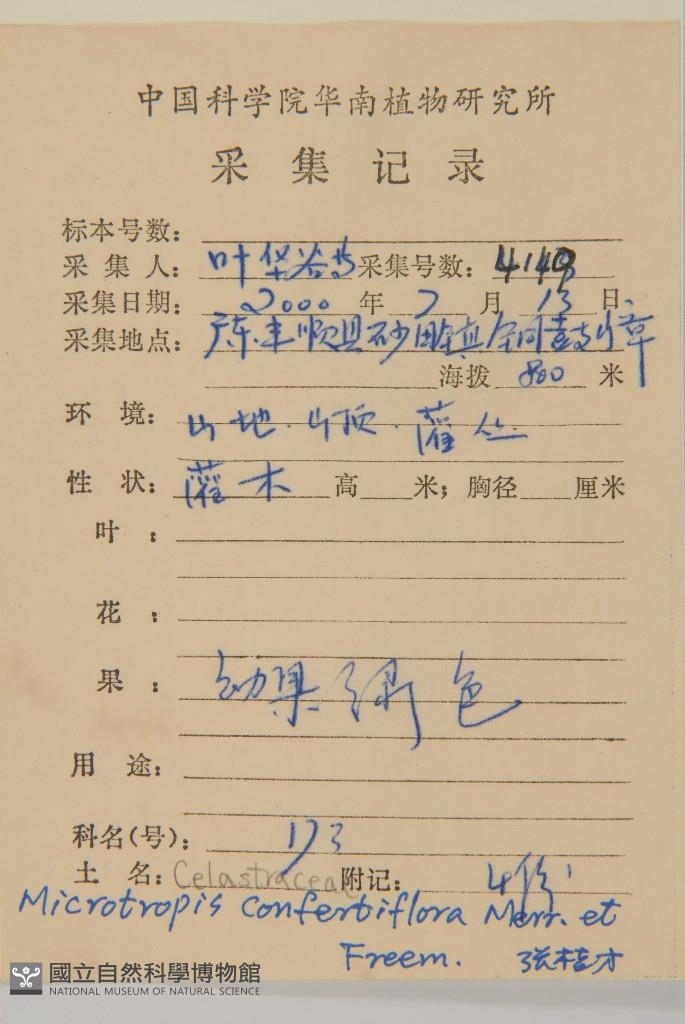 中国科学院华南植物研究所
采集记录
标本号数：
采集人：叶华谷等 采集号数：4149
采集日期：2000年7月13日
采集地点：广东丰顺县砂田镇
海拨 800 米
环境：山地.山顶.灌丛
性状：灌木 高 米；胸径 厘米
叶：
花：
果：幼果绿色
用途：
科名(号)：173
土名：Celastraceae 附记：4份
Microtropis confertiflora Merr. et
Freem. 张桂才
國立自然科學博物館
NATIONAL MUSEUM OF NATURAL SCIENCE